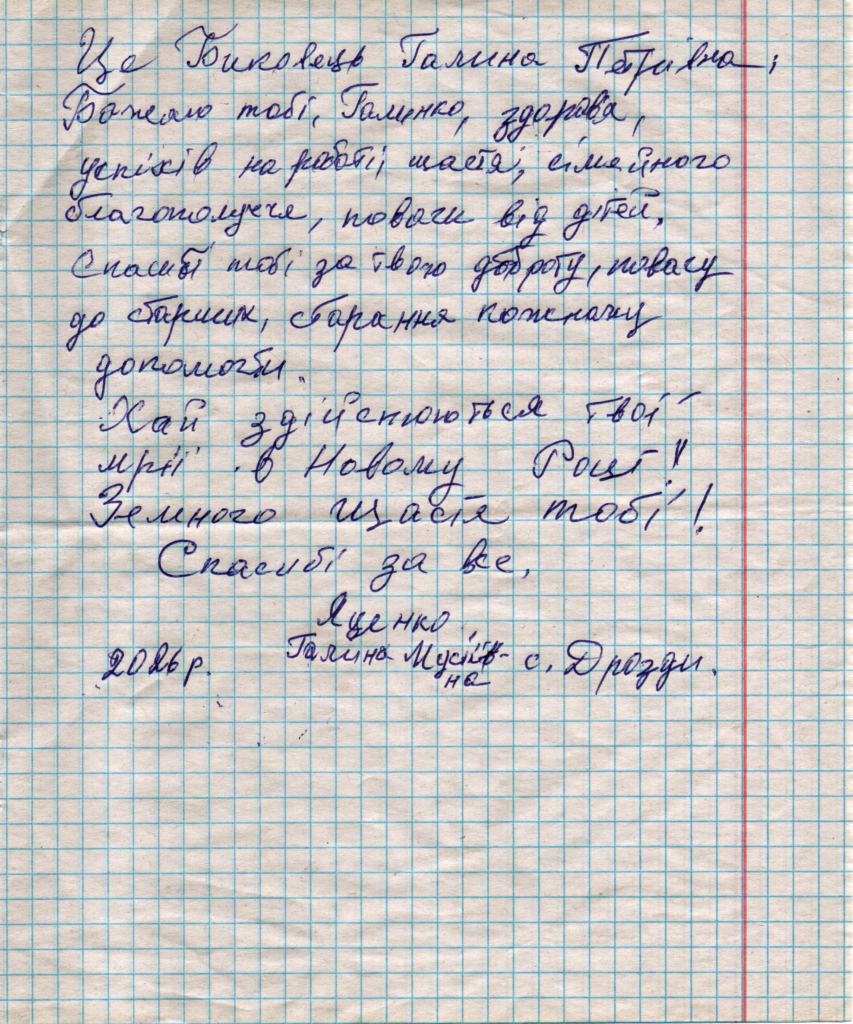 Це Биковець Галина Петрівна,
Бажаю тобі, Галинко, здоров'я,
успіхів на роботі, щастя, сімейного
благополуччя, поваги від дітей.
Спасибі тобі за твою доброту, повагу
до старших, старання кожному
допомогти.
Хай здійснюються твої
мрії в Новому Році!
Земного щастя тобі!
Спасибі за все.
Яценко
Галина Мусіїв-
на с. Дрозди.
2026 р.